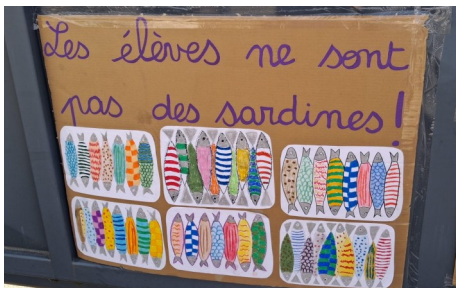 Les élèves ne sont
pas des sardines!